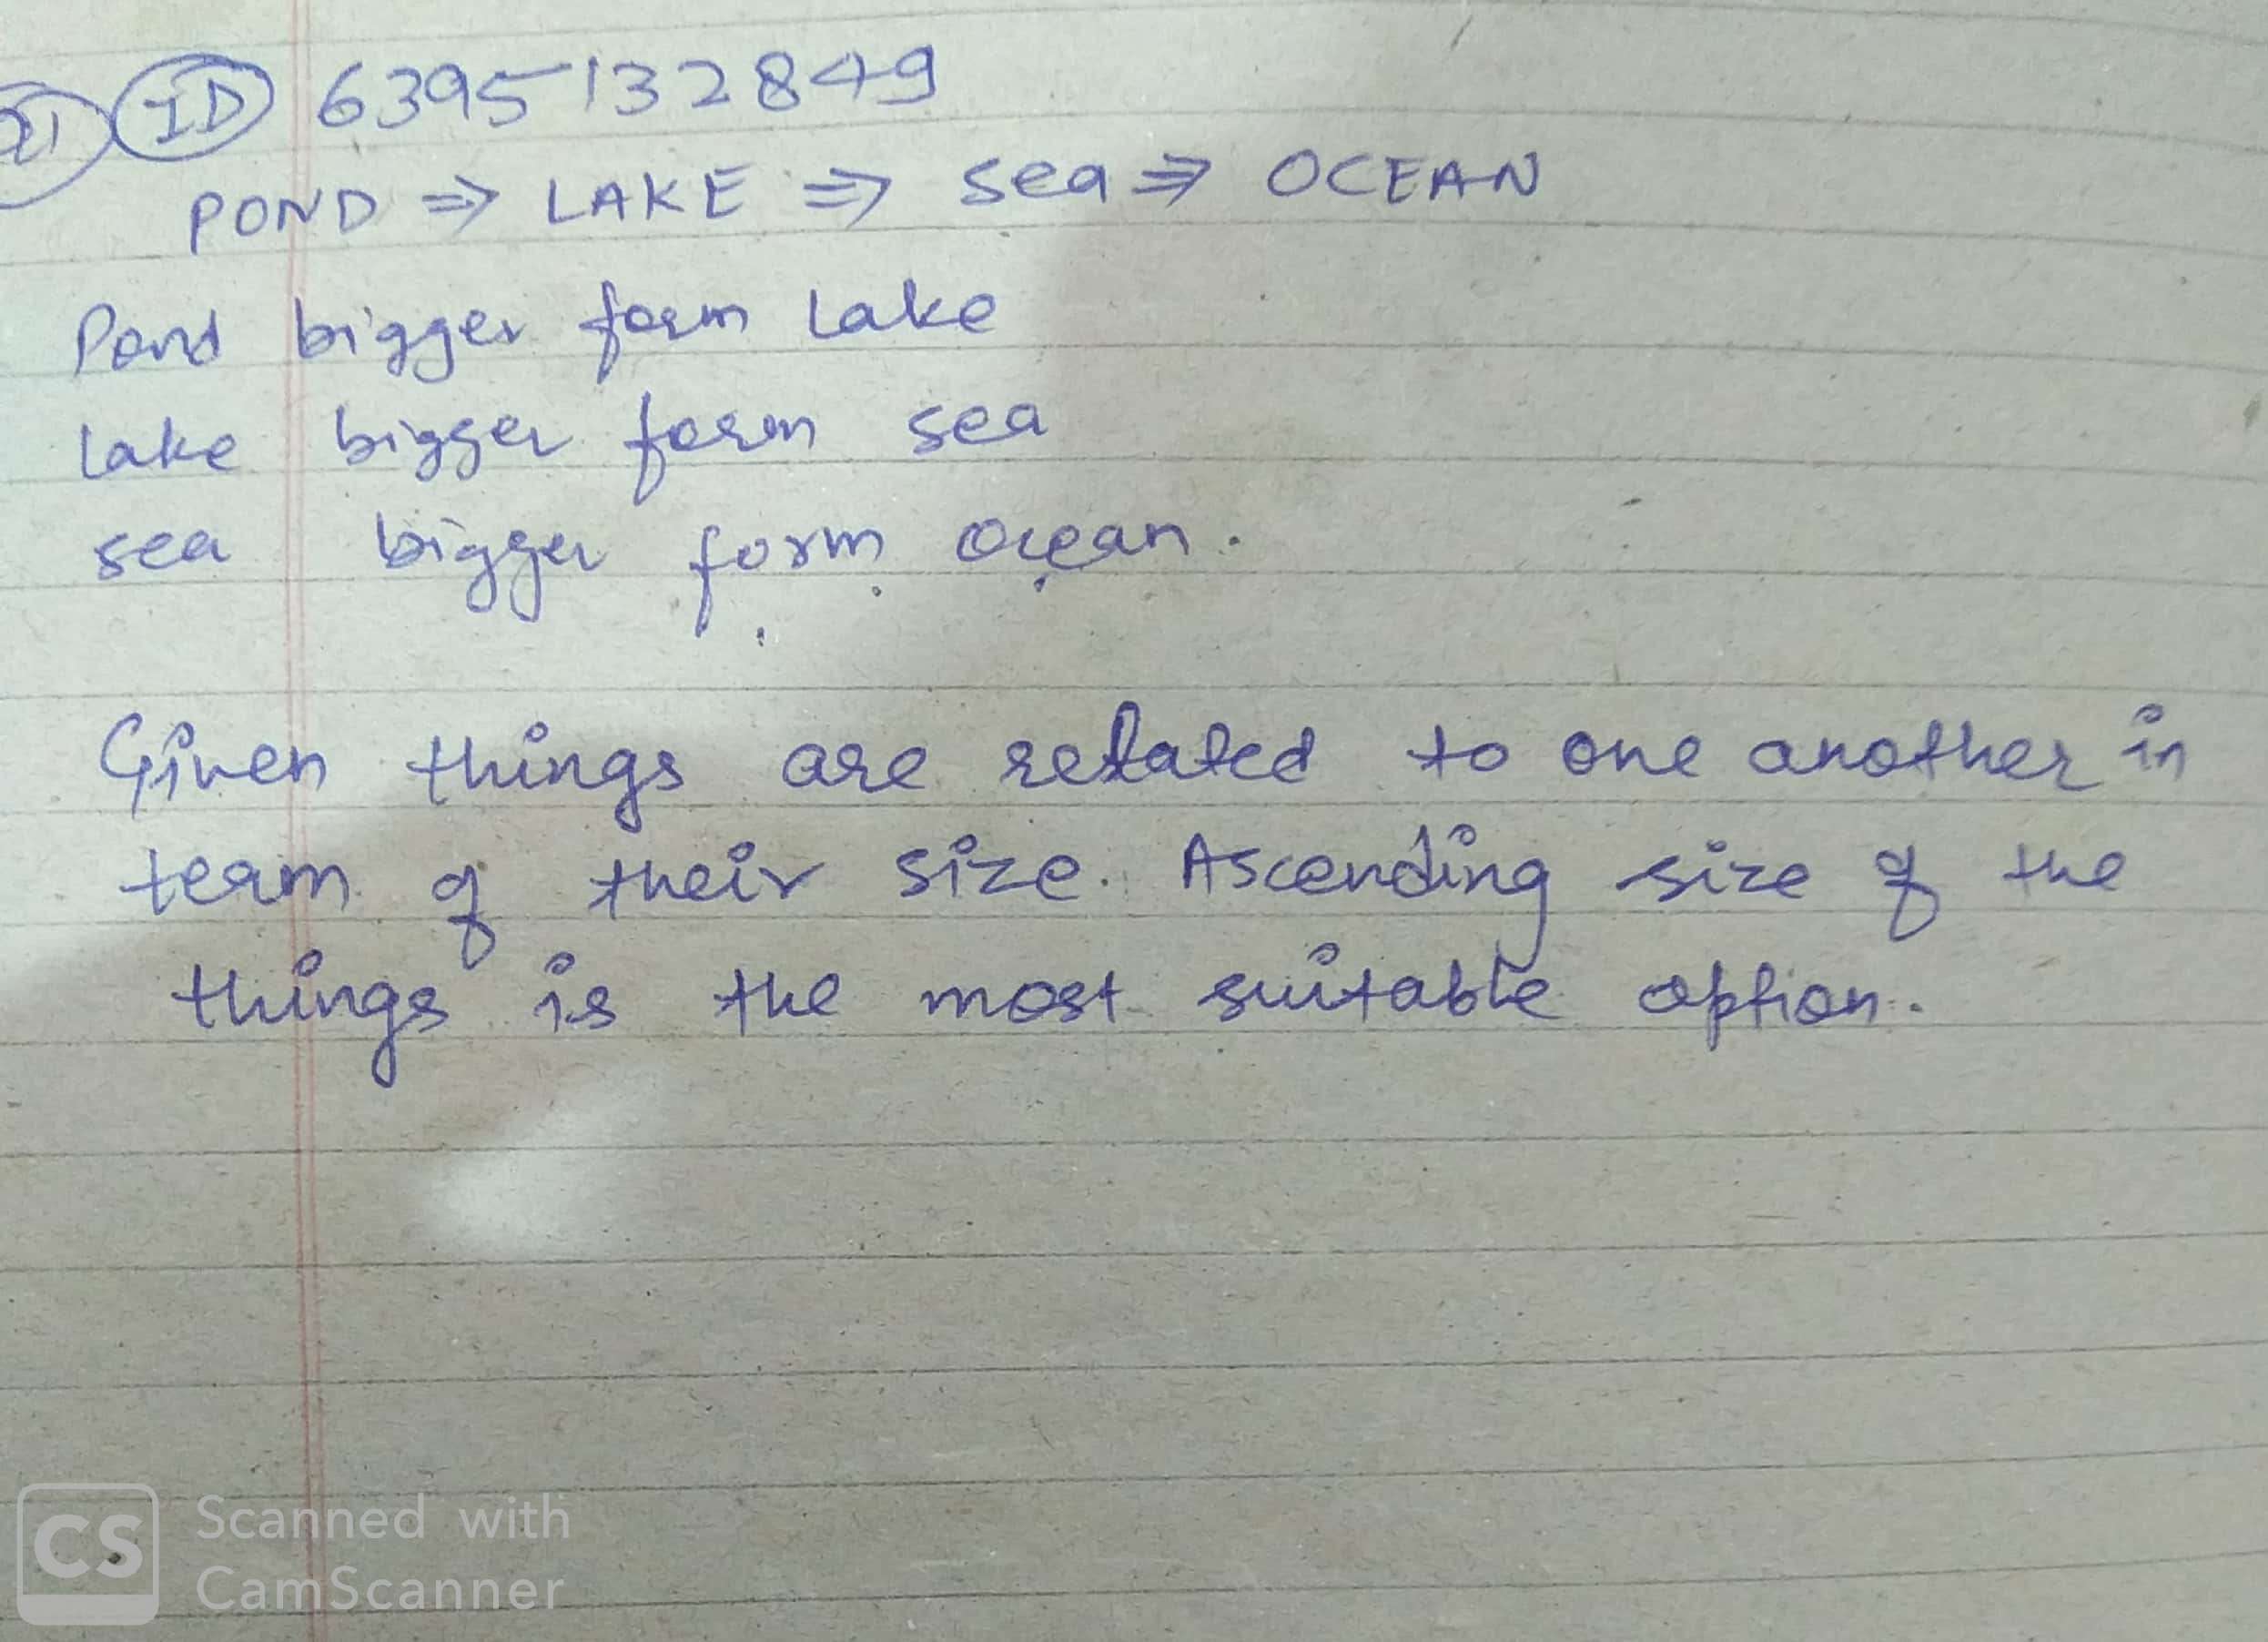 21 ID 6395132849
POND ⇒ LAKE ⇒ sea ⇒ OCEAN
Pond bigger form Lake
Lake bigger form sea
sea bigger form ocean.
Given things are related to one another in
team of their size. Ascending size of the
things is the most suitable option.
CS Scanned with
CamScanner